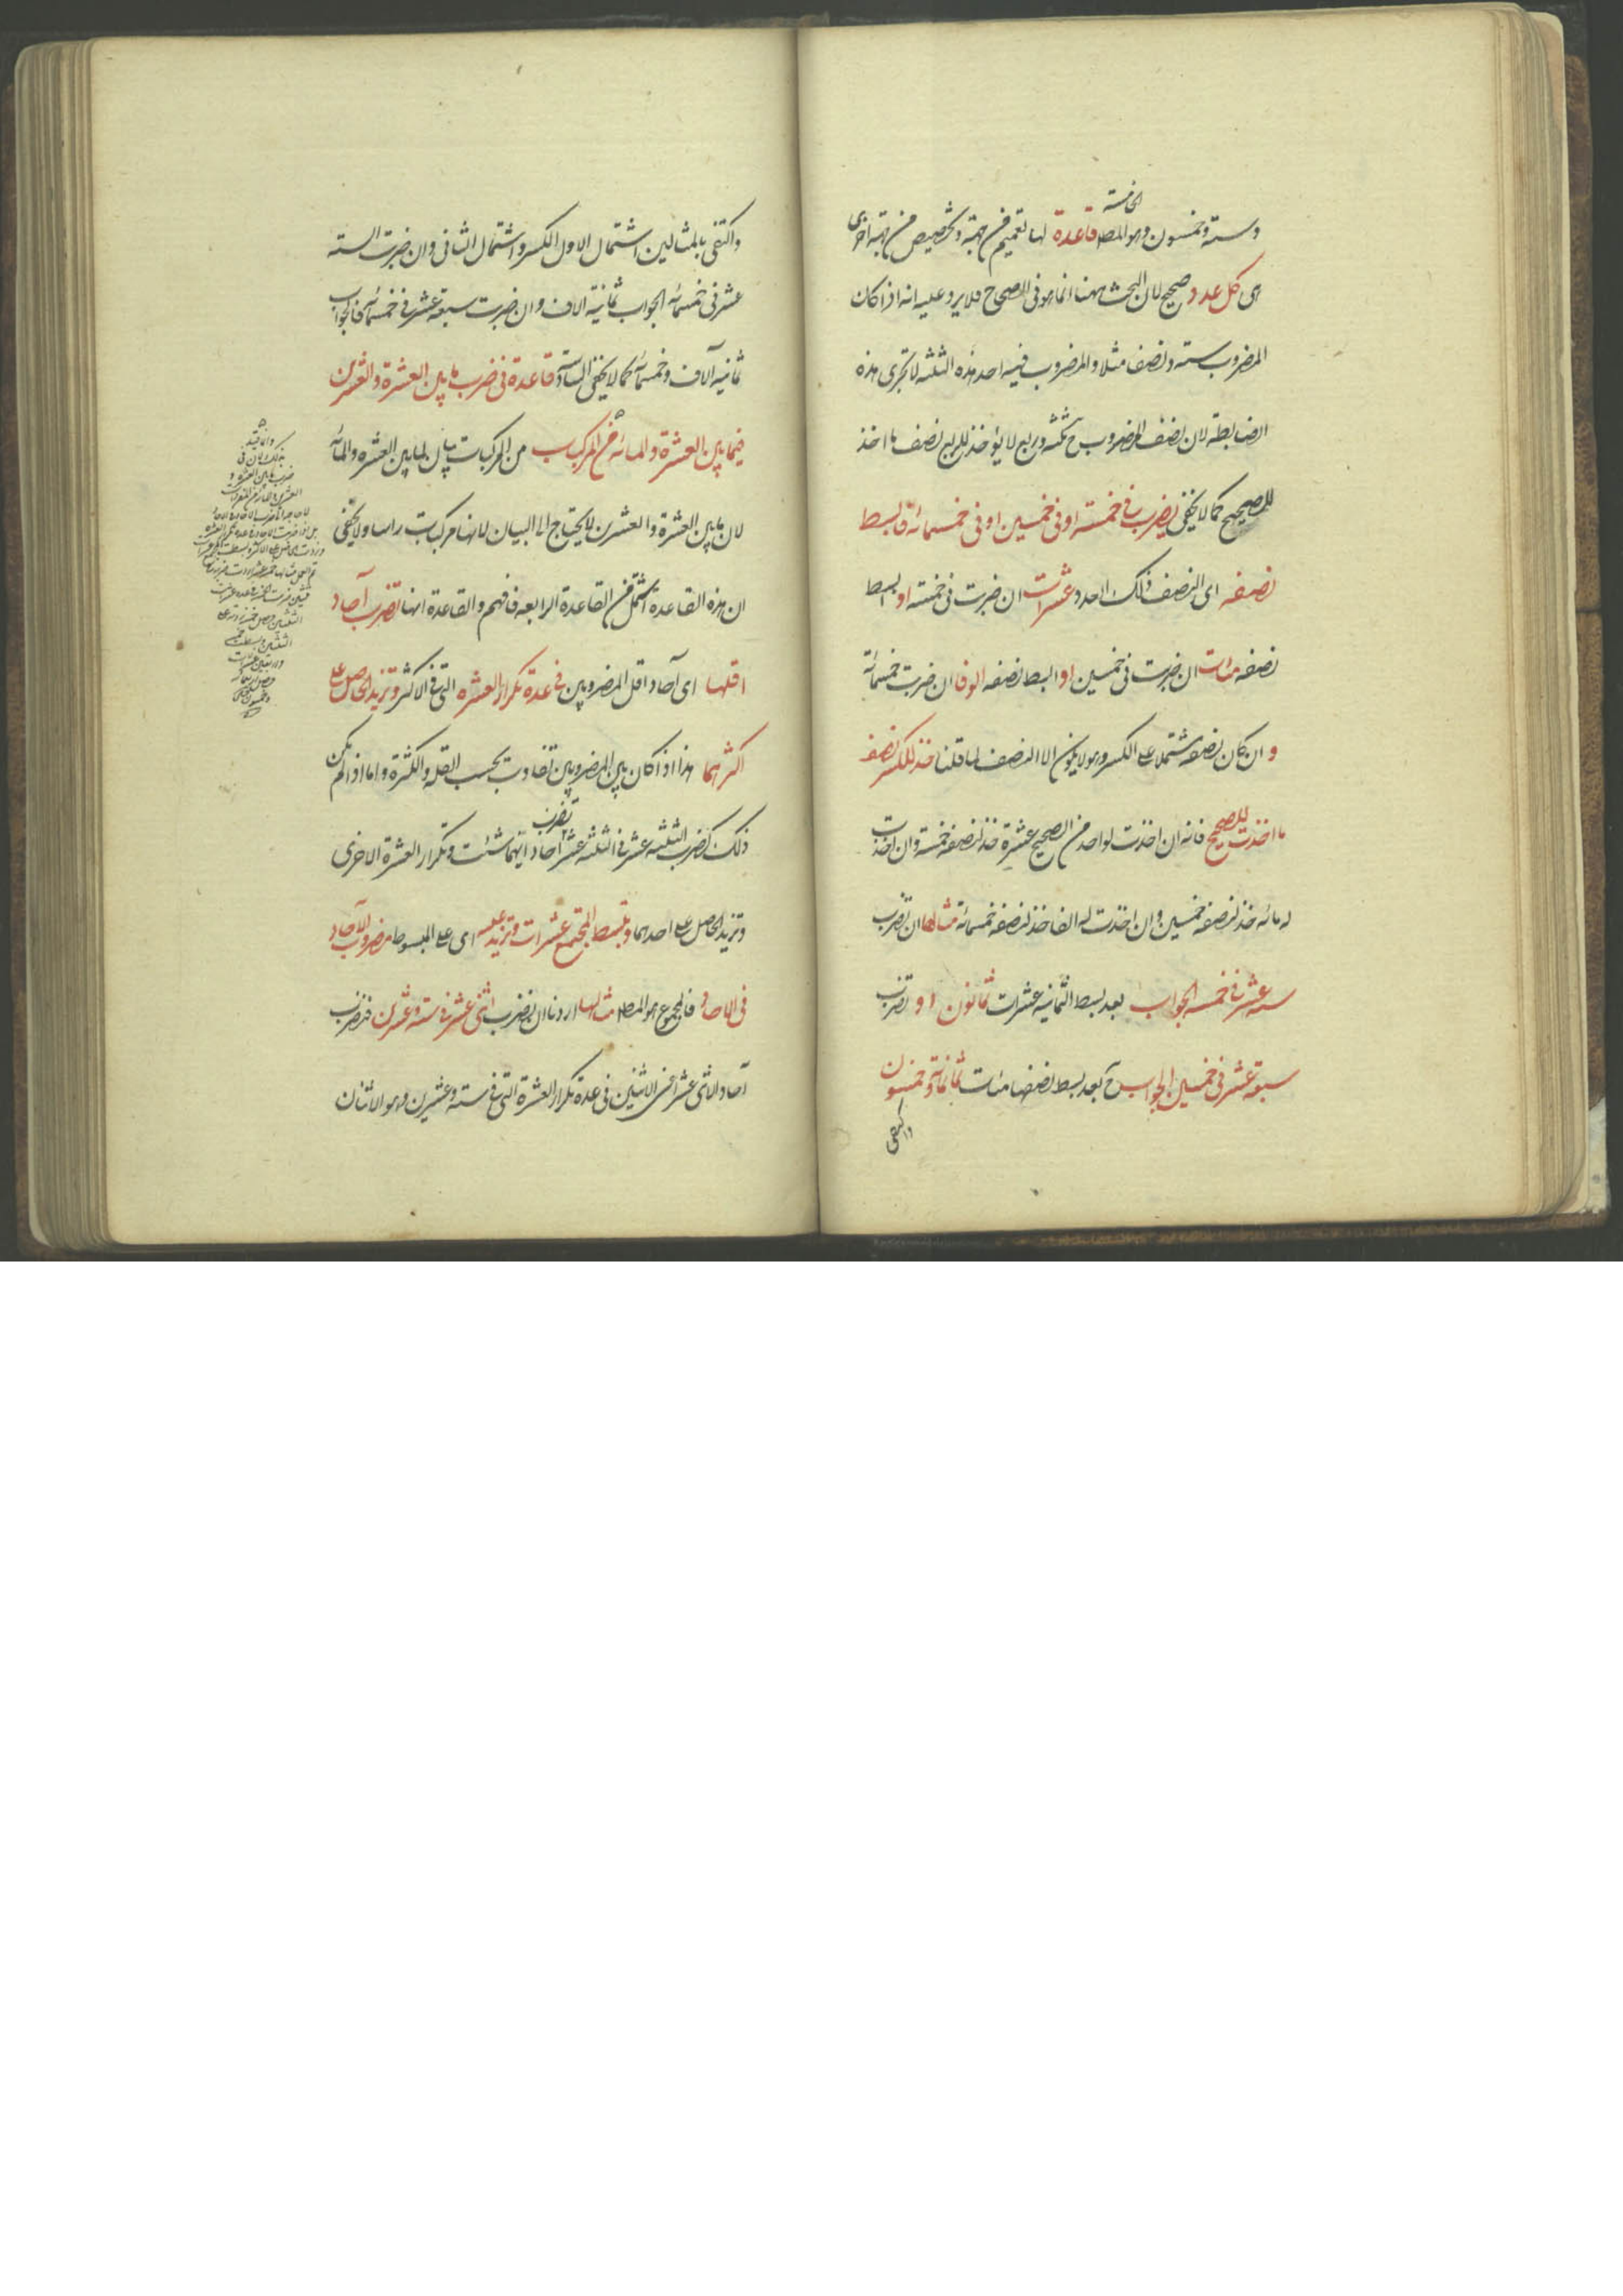 الخامسة
وستة وخمسون وهو المط قاعدة لها تعميم من جهة وتخصيص من جهة اخرى
اى كل عدد صحيح لان البحث ههنا انما هو فى الصحاح فلا يرد عليه انه اذا كان
المضروب ستة ونصف مثلا والمضروب فيه احد هذه الثلثة لا تجرى هذه
الضابطة لان نصف المضروب ح ثلثة وربع لا يؤخذ للربع نصف ما اخذ
للصحيح كما لا يخفى يضرب فى خمسة او فى خمسين او فى خمسمائة فابسط
نصفه اى النصف ذلك العدد عشرات ان ضربت فى خمسة او ابسط
نصفه مئات ان ضربت فى خمسين او ابسط نصفه الوفا ان ضربت خمسمائة
و ان كان نصفه مشتملا على الكسر وهو لا يكون الا النصف لما قلنا فخذ للكسر نصف
ما اخذت للصحيح فانه ان اخذت لواحد من الصحيح عشرة خذ لنصفه خمسة وان اخذت
له مائه خذ لنصفه خمسين وان اخذت له الفا خذ لنصفه خمسمائة مثالها ان تضرب
ستة عشر فى خمسه الجواب بعد بسط الثمانيه عشرات ثمانون او تضرب
سبعة عشر فى خمسين الجواب بعد بسط نصفها مئات ثمانمائة وخمسون
واكتفى
واكتفى بالمثالين اشتمال الاول الكسر واشتمال الثانى وان ضربت الستة
عشر فى خمسمائه الجواب ثمانية الاف وان ضربت سبعة عشر فى خمسمائه فالجواب
ثمانية آلاف وخمسمائه كما لا يخفى السادسة قاعدة فى ضرب ما بين العشرة والعشرين
فيما بين العشرة والمائه من المركبات من المركبات بيان لما بين العشره والمائه
لان ما بين العشرة والعشرين لا يحتاج الى البيان لانها مركبات راسا ولا يخفى
ان هذه القاعدة اشمل من القاعدة الرابعه فافهم والقاعدة انها تضرب آحاد
اقلهما اى آحاد اقل المضروبين فى عدة تكرار العشره التى فى الاكثر وتزيد الحاصل على
اكثرهما هذا اذا كان بين المضروبين تفاوت بحسب القله والكثرة واما اذا لم يكن
ذلك كضرب الثلثه عشر فى الثلثه عشر تضرب احاد ايهما شئت وتكرار العشرة الاخرى
وتزيد الحاصل على احدهما وتبسط المجتمع عشرات وتزيد عليه اى على المبسوط مضروب الآحاد
فى الاحاد فالمجموع هو المط مثالها اردنا ان نضرب اثنى عشر فى ستة وعشرين فنضرب
آحاد الاثنى عشر اعنى الاثنين فى عدة تكرار العشرة التى فى ستة وعشرين وهو الاثنان